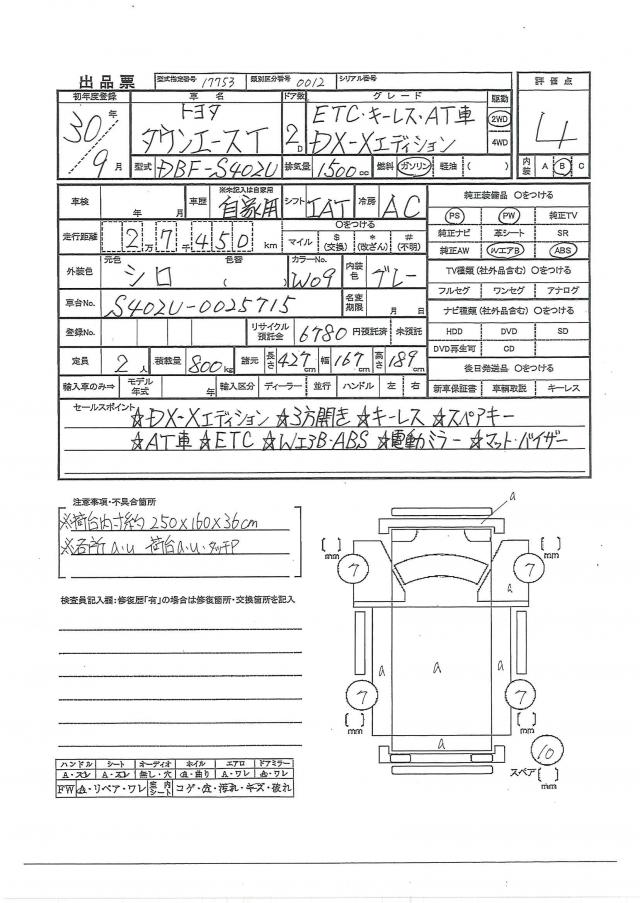 出品票 型式指定番号 17753 類別区分番号 0012 シリアル番号
初年度登録 車名 ドア数 グレード 駆動 評価点
30年 トヨタ 2D ETC・キーレス・AT車 2WD 4
9月 タウンエースT DX-Xエディション 4WD
型式 DBF-S402U 排気量 1500cc 燃料 ガソリン 軽油 ( ) 内装 A B C
車検 年 月 車歴 ※未記入は自家用 自家用 シフト IAT 冷房 AC 純正装備品 〇をつける
PS PW 純正TV
走行距離 2万7千450km 〇をつける マイル $(交換) *(改ざん) #(不明) 純正ナビ 革シート SR
純正AW Wエア B ABS
外装色 元色 シロ 色替 ( ) カラーNo. W09 内装色 グレー TV種類(社外品含む) 〇をつける
フルセグ ワンセグ アナログ
車台No. S402U-0025715 名変期限 月 日 ナビ種類(社外品含む) 〇をつける
登録No. リサイクル預託金 6780 円預託済 未預託 HDD DVD SD
DVD再生可 CD
定員 2人 積載量 800kg 諸元 長さ 427cm 幅 167cm 高さ 189cm 後日発送品 〇をつける
輸入車のみ⇒ モデル年式 年 輸入区分 ディーラー 並行 ハンドル 左 右 新車保証書 車輌取説 キーレス
セールスポイント
☆DX-Xエディション ☆3方開き ☆キーレス ☆スペアキー
☆AT車 ☆ETC ☆WエアB・ABS ☆電動ミラー ☆マット・バイザー
注意事項・不具合箇所
※荷台内寸約 250×160×36cm
※各所a.u 荷台a.u・タッチP
検査員記入欄:修復歴「有」の場合は修復箇所・交換箇所を記入
a
[ ] mm 7 7 [ ] mm
a
a a a
7 7
[ ] mm [ ] mm
a
10
スペア [ ] mm
ハンドル シート オーディオ ホイル エアロ ドアミラー
A・スレ A・スレ 無し・穴 A・曲り A・ワレ A・ワレ
FW A・リペア・ワレ 室内シート コゲ・穴・汚れ・キズ・破れ